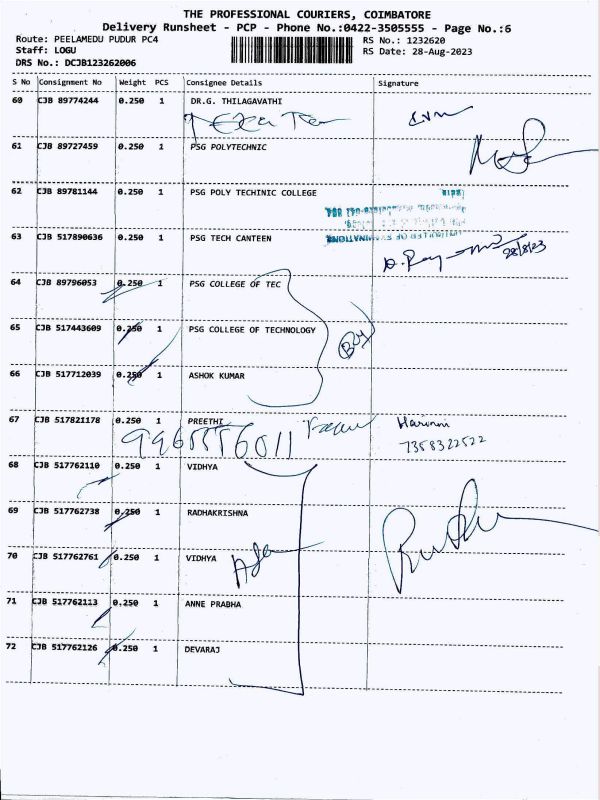 THE PROFESSIONAL COURIERS, COIMBATORE
Delivery Runsheet - PCP - Phone No.:0422-3505555 - Page No.:6
Route: PEELAMEDU PUDUR PC4 RS No.: 1232620
Staff: LOGU RS Date: 28-Aug-2023
DRS No.: DCJB123262006
S No Consignment No Weight PCS Consignee Details Signature
60 CJB 89774244 0.250 1 DR.G. THILAGAVATHI
61 CJB 89727459 0.250 1 PSG POLYTECHNIC
62 CJB 89781144 0.250 1 PSG POLY TECHINIC COLLEGE
63 CJB 517890636 0.250 1 PSG TECH CANTEEN
28/8/23
64 CJB 89796053 0.250 1 PSG COLLEGE OF TEC
65 CJB 517443609 0.250 1 PSG COLLEGE OF TECHNOLOGY
66 CJB 517712039 0.250 1 ASHOK KUMAR
67 CJB 517821178 0.250 1 PREETHI
7358322522
68 CJB 517762110 0.250 1 VIDHYA
69 CJB 517762738 0.250 1 RADHAKRISHNA
70 CJB 517762761 0.250 1 VIDHYA
71 CJB 517762113 0.250 1 ANNE PRABHA
72 CJB 517762126 0.250 1 DEVARAJ